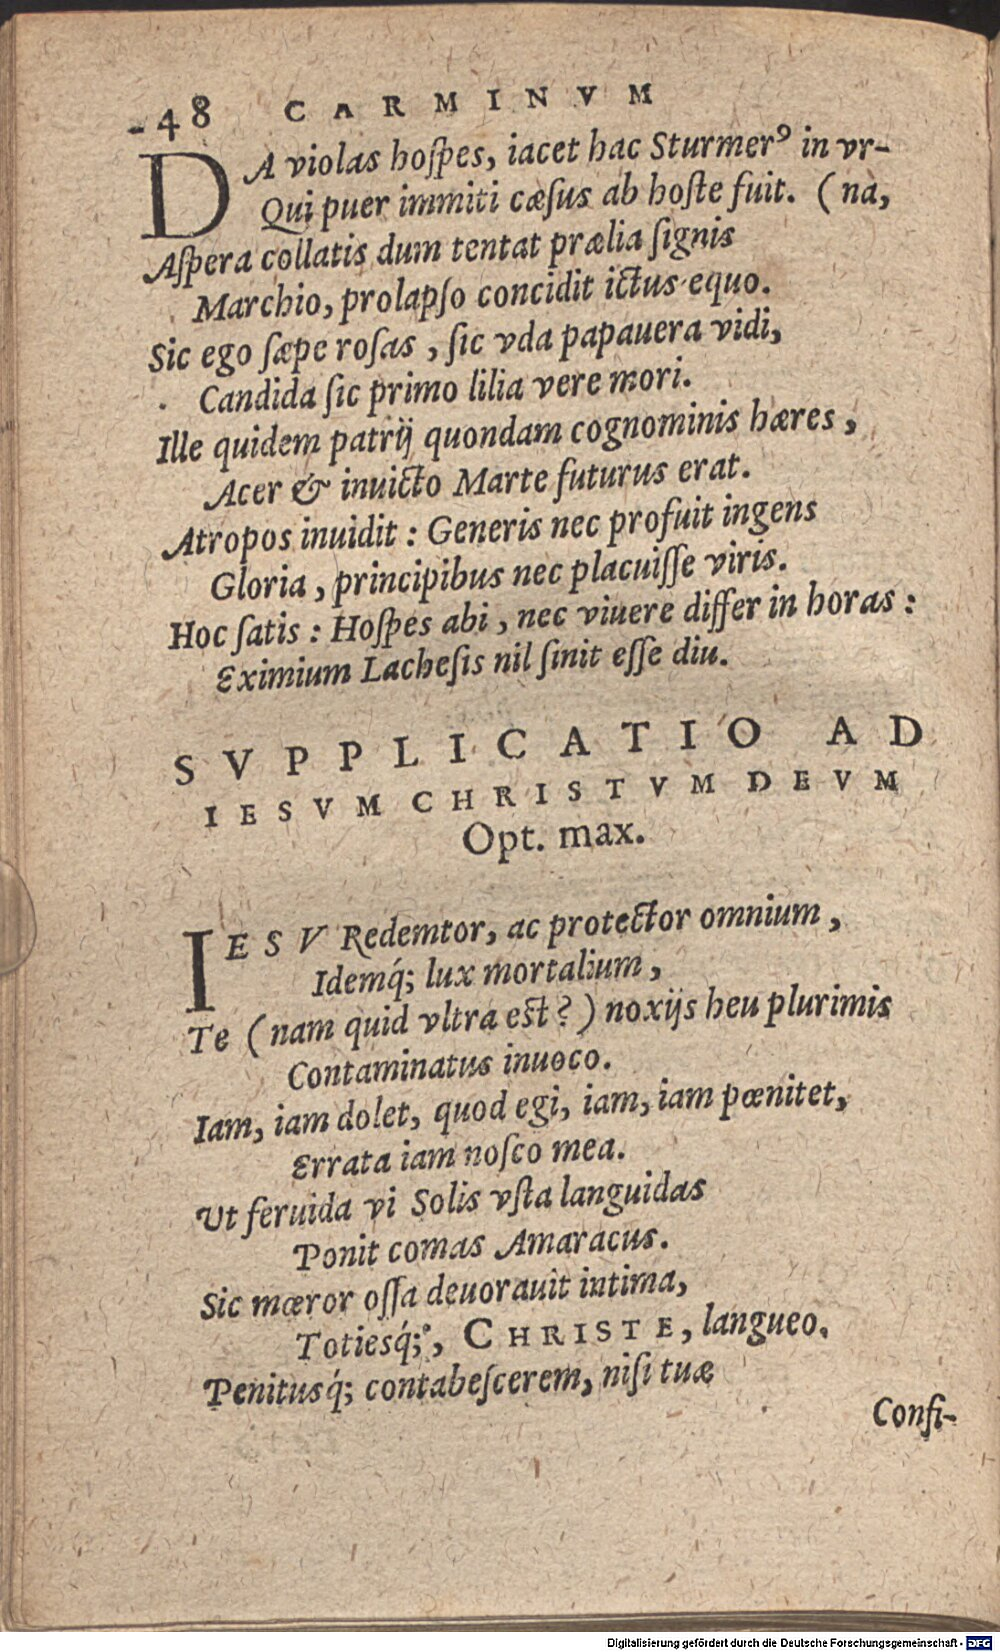 48 CARMINVM
DA violas hoſpes, iacet hac Sturmerꝰ in vr-
Qui puer immiti cæſus ab hoſte fuit. (na,
Aſpera collatis dum tentat prælia ſignis
Marchio, prolapſo concidit ictus equo.
Sic ego ſæpe roſas, ſic vda papauera vidi,
Candida ſic primo lilia vere mori.
Ille quidem patrij quondam cognominis hæres,
Acer & inuicto Marte futurus erat.
Atropos inuidit: Generis nec profuit ingens
Gloria, principibus nec placuiſſe viris.
Hoc ſatis: Hoſpes abi, nec viuere differ in horas:
Eximium Lacheſis nil ſinit eſſe diu.
SVPPLICATIO AD
IESVM CHRISTVM DEVM
Opt. max.
IESV Redemtor, ac protector omnium,
Idemq́; lux mortalium,
Te (nam quid vltra eſt?) noxijs heu plurimis
Contaminatus inuoco.
Iam, iam dolet, quod egi, iam, iam pœnitet,
Errata iam noſco mea.
Ut feruida vi Solis vſta languidas
Ponit comas Amaracus.
Sic mœror oſſa deuorauit intima,
Totiesq́;, CHRISTE, langueo.
Penitusq́; contabeſcerem, niſi tuæ
Confi-
Digitalisierung gefördert durch die Deutsche Forschungsgemeinschaft - DFG